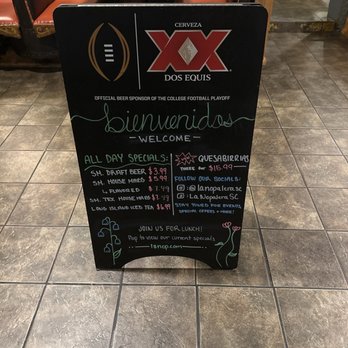 CERVEZA
XX
DOS EQUIS
OFFICIAL BEER SPONSOR OF THE COLLEGE FOOTBALL PLAYOFF
bienvenidos
- WELCOME -
ALL DAY SPECIALS:
SM. DRAFT BEER $3.99
SM. HOUSE MARG $5.99
↳ FLAVORED $7.49
SM. TEX HOUSE MARG $7.49
LONG ISLAND ICED TEA $6.99
QUESABIRRIAS
THREE FOR $15.99
FOLLOW OUR SOCIALS:
: @lanopalerasc
: La Nopalera SC
STAY TUNED FOR EVENTS,
SPECIAL OFFERS + MORE!
JOIN US FOR LUNCH!
to view our current specials
lanop.com